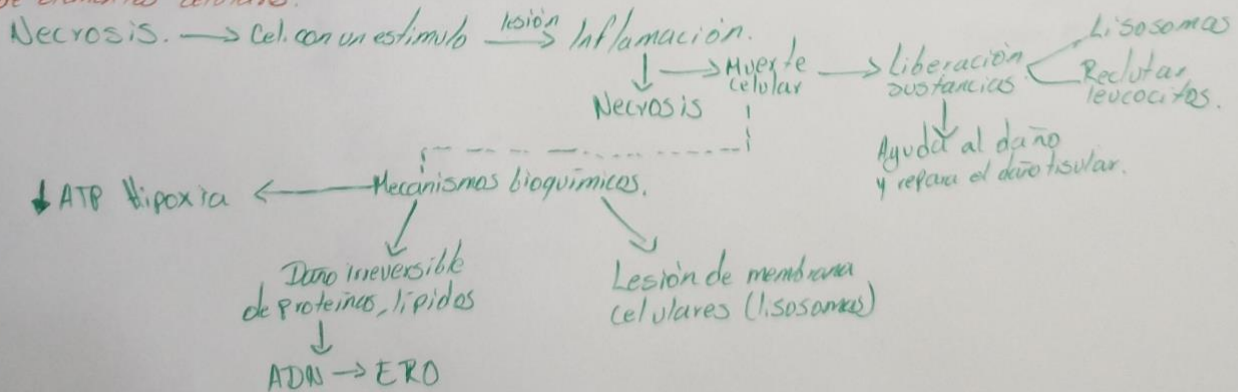 Necrosis. → Cel. con un estimulo lesión → Inflamación.
Necrosis
→ Muerte
celular
→ Liberación
sustancias
Lisosomas
Reclutar
leucocitos.
Ayuda al daño
y repara el daño tisular.
Mecánismos bioquímicos.
↓ ATP Hipoxia
Daño irreversible
de proteinas, lípidos
ADN → ERO
Lesión de membrana
celulares (lisosomas)